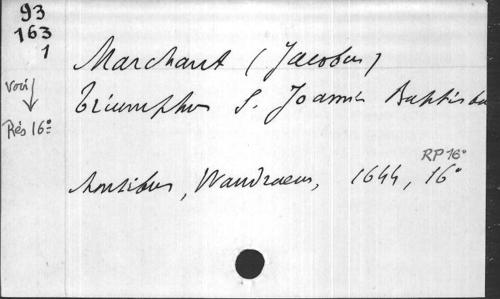 93
163
1
Marchant (Jacobus)
voir
Triumphus S. Joannis Baptistae
Rés 16°
RP 16°
Montibus, Waudraeus, 1644, 16°